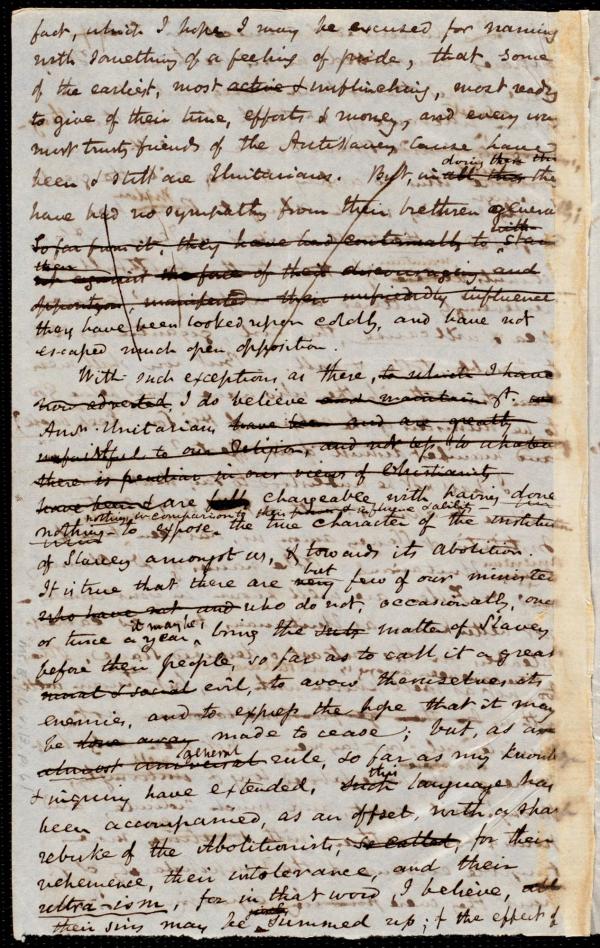 fact, which I hope I may be excused for naming
with something of a feeling of pride, that some
of the earliest, most active & unflinching, most ready
to give of their time, efforts & money, and every way
most trusty friends of the Antislavery cause have
been & still are Unitarians. But, in all this the
doing this
have had no sympathy from their brethren genera
with
So far from it, they have had continually to stan
their
out against the face of their discouraging and
opposition, manifested their unfriendly influence
they have been looked upon coldly, and have not
escaped much open opposition.
With such exceptions as these, to which I have
now adverted, I do believe and maintain yt.
Amn. Unitarians have been and are greatly
unfaithful to our religion, and not less to whatever
there is peculiar in our views of Christianity
have been & are chargeable with having done
nothing in comparison to their & ability
nothing to expose the true character of the institu
of Slavery amongst us, & towards its abolition.
but
It is true that there are very few of our ministe
who have not and who do not, occasionally, once
it may be,
or twice a year, bring the subj matter of Slavery
before their people, so far as to call it a great
moral & social evil, to avow themselves its
enemies, and to express the hope that it may
be done away made to cease; but, as an
general
almost universal rule, so far as my knowl
this
& inquiry have extended, such language has
been accompanied, as an offset, with a shar
rebuke of the Abolitionists, so called, for their
vehemence, their intolerance, and their
ultra-ism, for in that word, I believe, all
their sins may be summed up; & the effect of